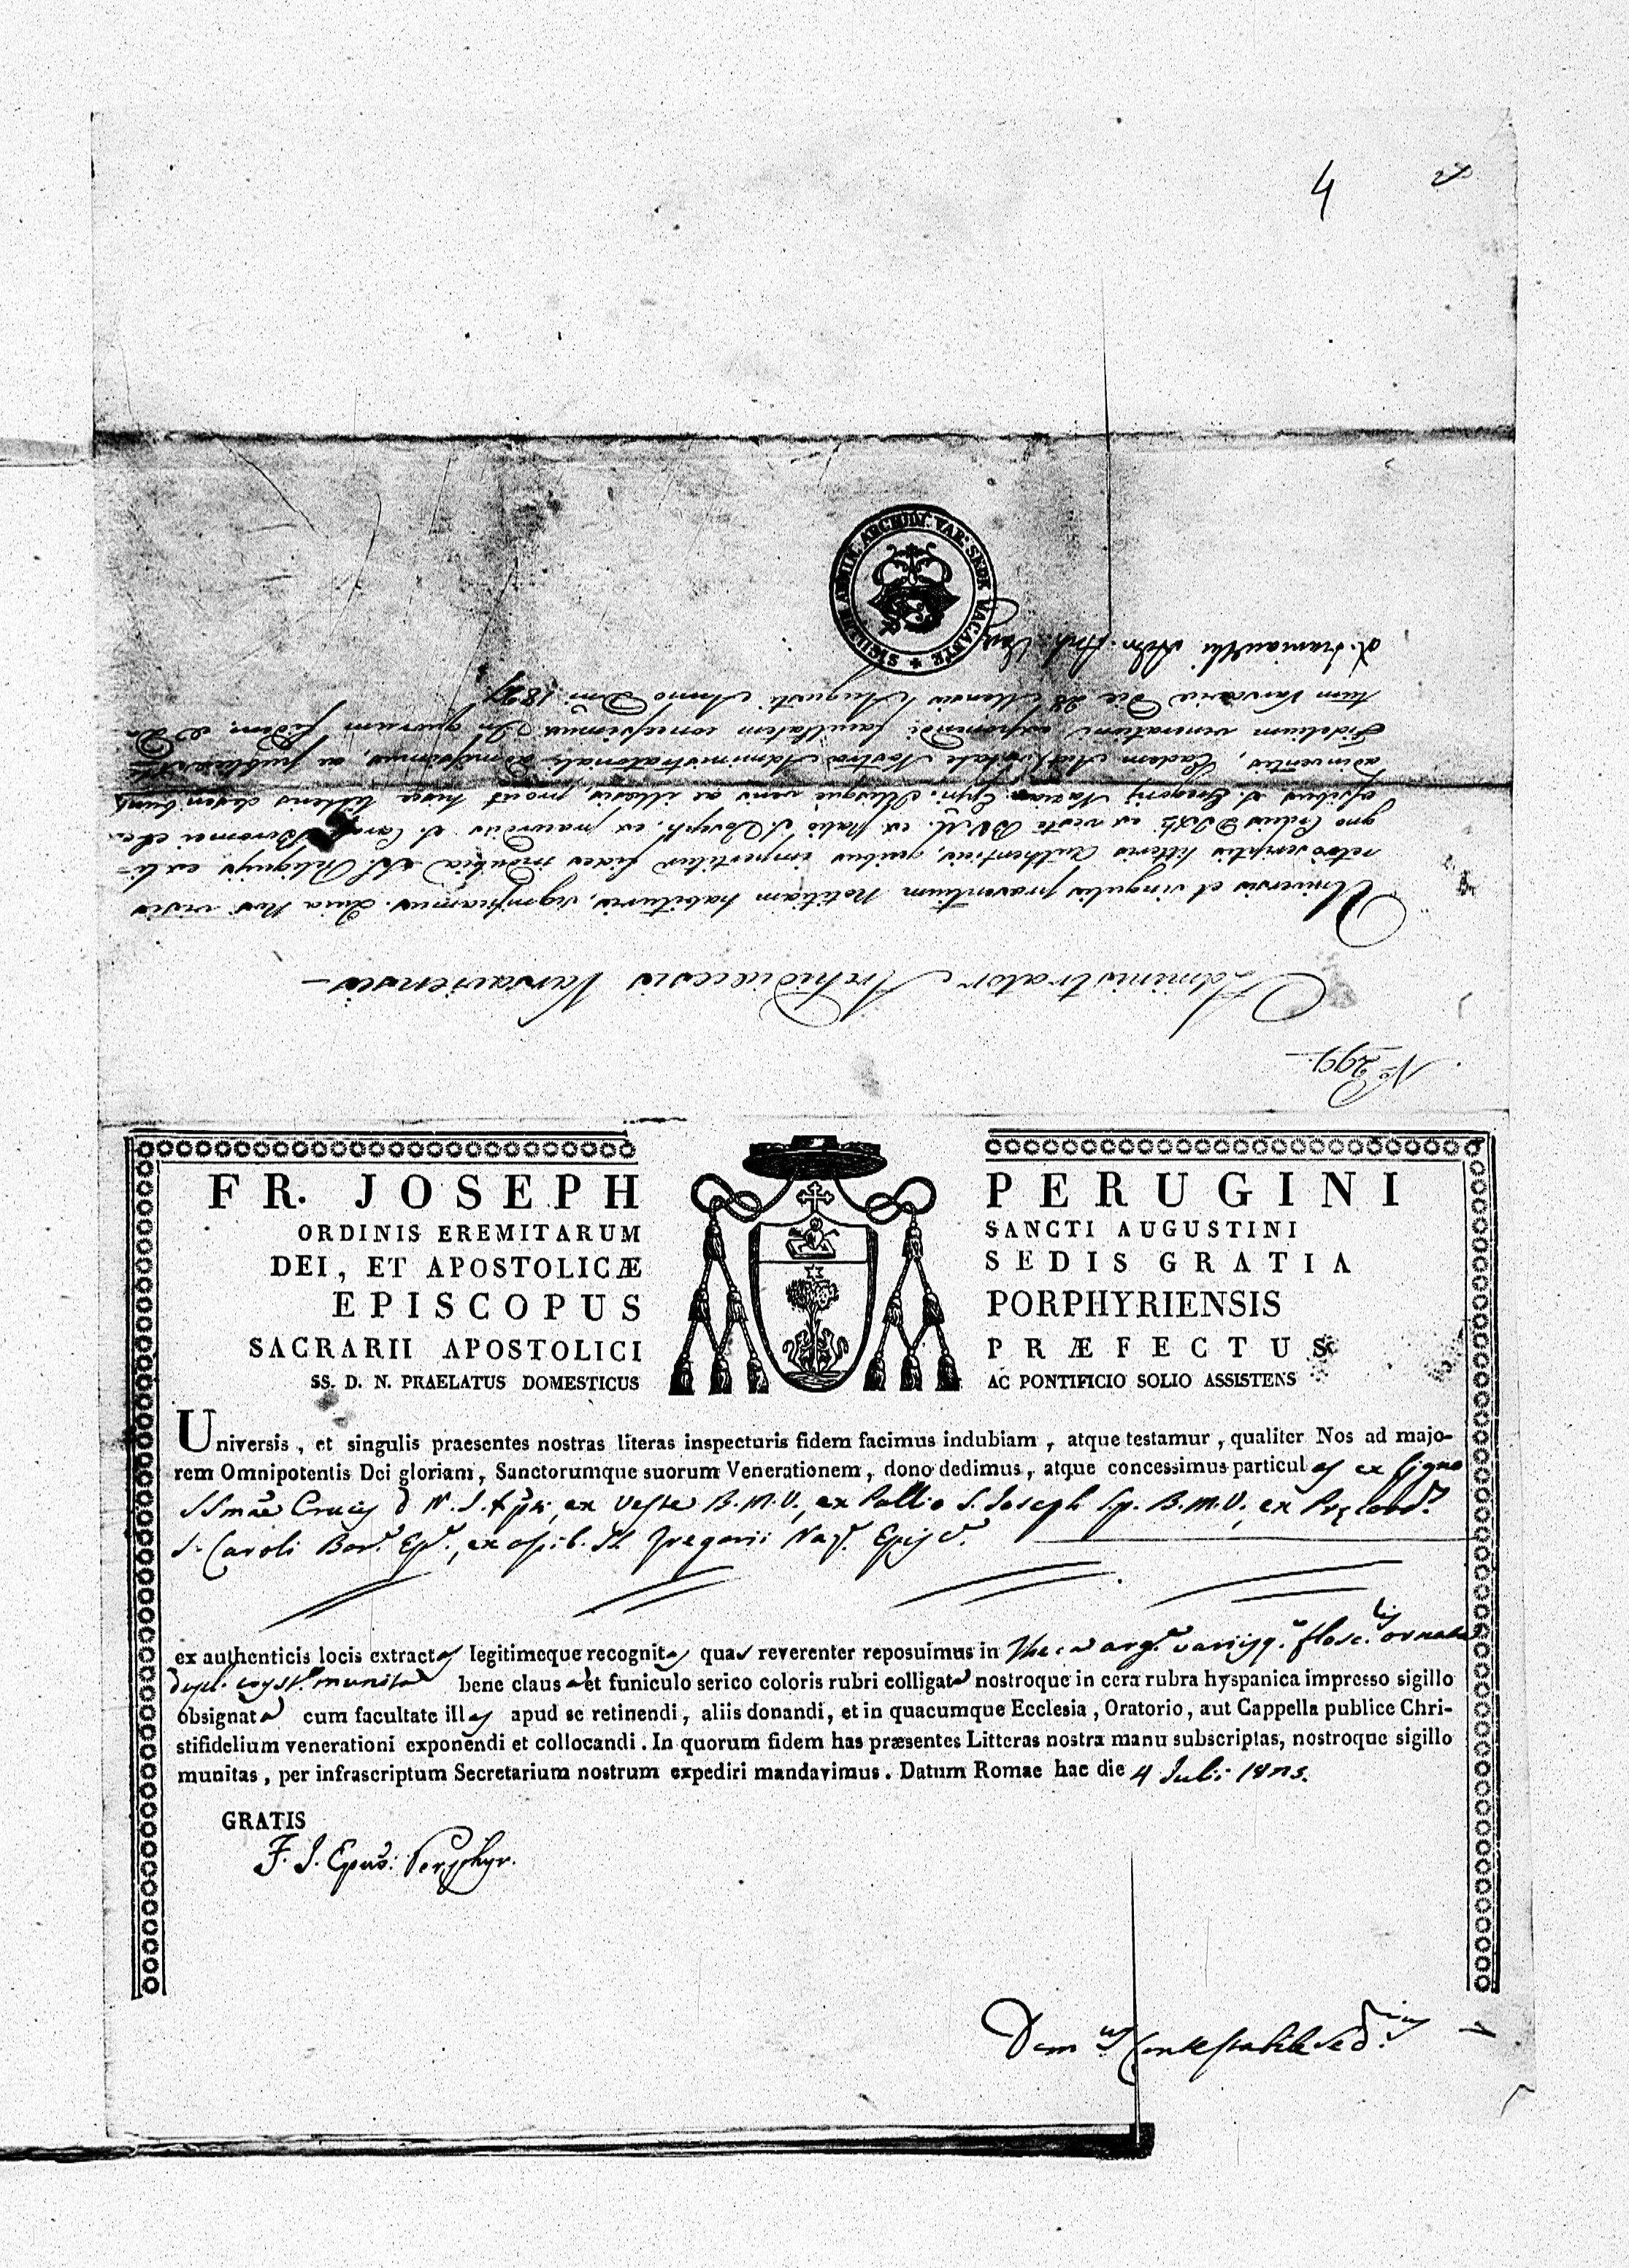 4
SIGILLUM ADMIN. ARCHIDI. VAR. SEDE VACANTE
No 299.
Administrator Archidiecesis Varsaviensis
Universis et singulis praesentium Notitiam habituris, significamus. Quia Nos visis
retroscriptis litteris authenticis, quibus impertitur fides indubia SS. Reliquiis ex li-
gno Crucis D. N. ex veste B.V.M. ex Palio S. Joseph, ex praecordiis S. Caroli Boromei
ossibus S. Gregorii Nazian. Epi. Illisque veris ac illaesis, prout hisce litteris describuntur
adinventis, Easdem Auctoritate Nostra Administratoriali admisimus, ac publicae
Fidelium venerationi exponendi facultatem concessimus. In quorum fidem. Da
tum Varsaviae Die 28 Mensis Augusti Anno Dni 1827
Adm. Arch. Var.
FR. JOSEPH PERUGINI
ORDINIS EREMITARUM SANCTI AUGUSTINI
DEI, ET APOSTOLICÆ SEDIS GRATIA
EPISCOPUS PORPHYRIENSIS
SACRARII APOSTOLICI PRÆFECTUS
SS. D. N. PRAELATUS DOMESTICUS AC PONTIFICIO SOLIO ASSISTENS
Universis, et singulis praesentes nostras literas inspecturis fidem facimus indubiam, atque testamur, qualiter Nos ad majo-
rem Omnipotentis Dei gloriam, Sanctorumque suorum Venerationem, dono dedimus, atque concessimus particulas ex Ligno
SSmae Crucis D. N. J. Xpti, ex Veste B.M.V., ex Pallio S. Joseph Sp. B.M.V., ex Præcord.
S. Caroli Bor. Ep., ex ossib. S. Gregorii Naz. Epis
ex authenticis locis extractas legitimeque recognitas quas reverenter reposuimus in Theca arg. variisq. flosculis ornata
dupl. cryst. munita bene clausa et funiculo serico coloris rubri colligata nostroque in cera rubra hyspanica impresso sigillo
obsignata cum facultate illas apud se retinendi, aliis donandi, et in quacumque Ecclesia, Oratorio, aut Cappella publice Chri-
stifidelium venerationi exponendi et collocandi. In quorum fidem has præsentes Litteras nostra manu subscriptas, nostroque sigillo
munitas, per infrascriptum Secretarium nostrum expediri mandavimus. Datum Romae hac die 4 Julii
GRATIS
F. J. Epus: Porphyr.